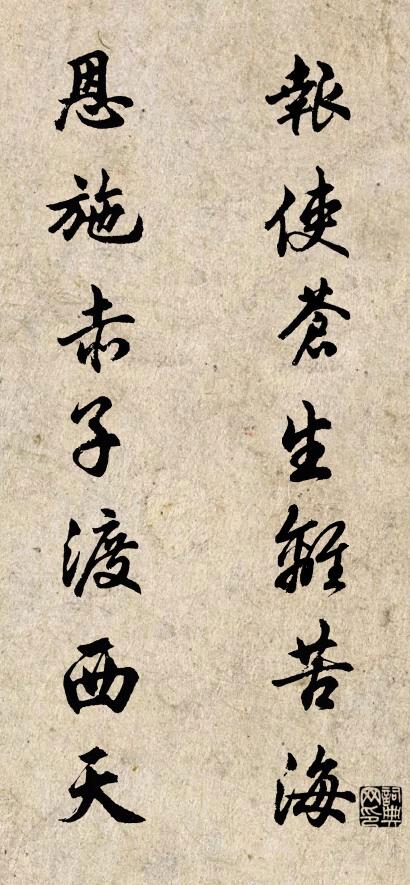 報使蒼生離苦海
恩施赤子渡西天
詞典网印